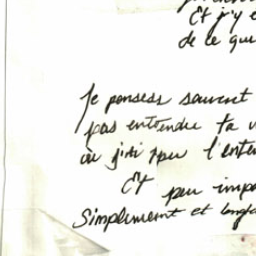 Et j'y
de ce que
Je pensais souvent
pas entendu ta
où j'ai pu l'enten
Et peu impo
Simplement et longt